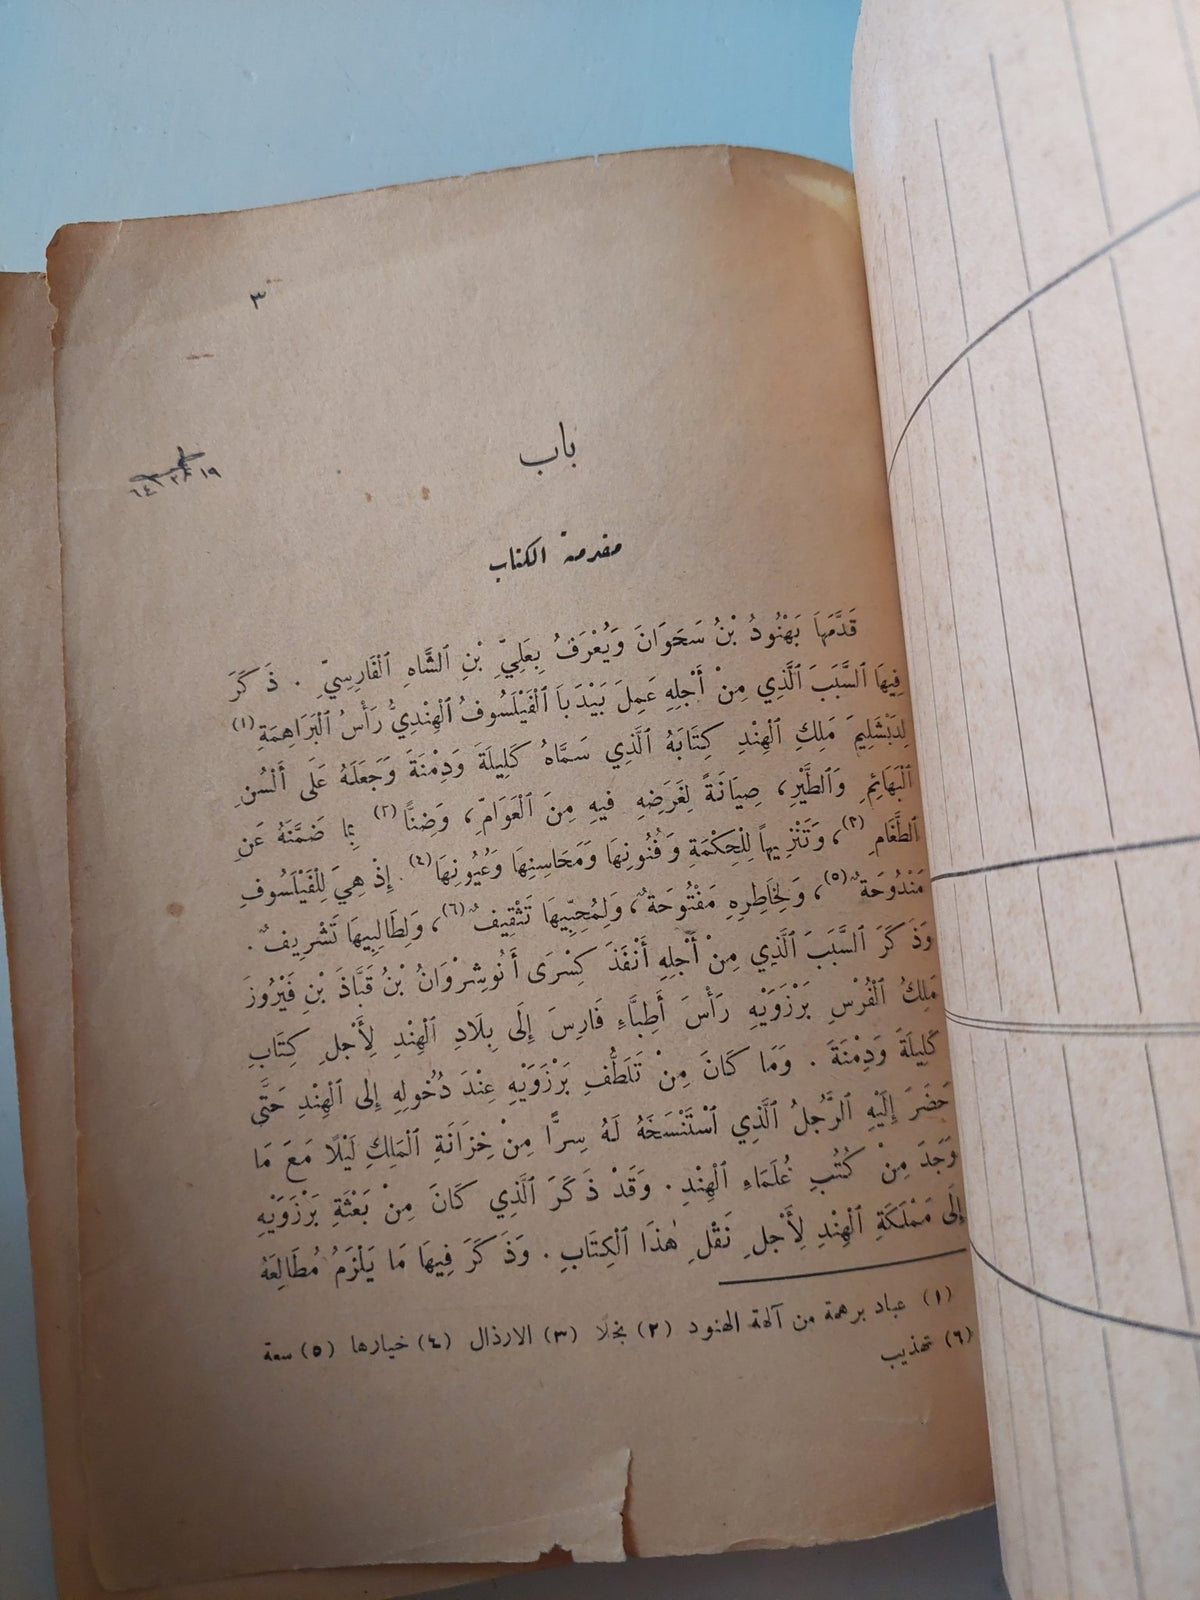 ٣
باب
مقدمة الكتاب
قَدَّمَهَا بَهْنُودُ بْنُ سَحَوَانَ وَيُعْرَفُ بِعَلِيِّ بْنِ ٱلشَّاهِ ٱلْفَارِسِيِّ . ذَ كَرَ
فِيهَا ٱلسَّبَبَ ٱلَّذِي مِنْ أَجْلِهِ عَمِلَ بَيْدَبَا ٱلْفَيْلَسُوفُ ٱلْهِنْدِيُّ رَأْسُ ٱلْبَرَاهِمَةِ (١)
لِدَبْشَلِيمَ مَلِكِ ٱلْهِنْدِ كِتَابَهُ ٱلَّذِي سَمَّاهُ كَلِيلَةَ وَدِمْنَةَ وَجَعَلَهُ عَلَى أَلْسُنِ
ٱلْبَهَائِمِ وَٱلطَّيْرِ، صِيَانَةً لِغَرَضِهِ فِيهِ مِنَ ٱلْعَوَامِّ، وَضَنًّا (٢) بِمَا ضَمَّنَهُ عَنِ
ٱلطَّغَامِ (٣)، وَتَنْزِيهاً لِلْحِكْمَةِ وَفُنُونِهَا وَمَحَاسِنِهَا وَعُيُونِهَا (٤) . إِذْ هِيَ لِلْفَيْلَسُوفِ
مَنْدُوحَةٌ (٥)، وَلِخَاطِرِهِ مَفْتُوحَةٌ، وَلِمُحِبِّيهَا تَثْقِيفٌ (٦)، وَلِطَالِبِيهَا تَشْرِيفٌ .
وَذَ كَرَ ٱلسَّبَبَ ٱلَّذِي مِنْ أَجْلِهِ أَنْفَذَ كِسْرَى أَنُوشِرْوَانُ بْنُ قَبَّاذَ بْنِ فَيْرُوزَ
مَلِكُ ٱلْفُرْسِ بَرْزَوَيْهِ رَأْسَ أَطِبَّاءِ فَارِسَ إِلَى بِلَادِ ٱلْهِنْدِ لِأَجْلِ كِتَابِ
كَلِيلَةَ وَدِمْنَةَ . وَمَا كَانَ مِنْ تَلَطُّفِ بَرْزَوَيْهِ عِنْدَ دُخُولِهِ إِلى ٱلْهِنْدِ حَتَّى
حَضَرَ إِلَيْهِ ٱلرَّجُلُ ٱلَّذِي ٱسْتَنْسَخَهُ لَهُ سِرًّا مِنْ خِزَانَةِ ٱلْمَلِكِ لَيْلًا مَعَ مَا
وَجَدَ مِنْ كُتُبِ عُلَمَاءِ ٱلْهِنْدِ . وَقَدْ ذَ كَرَ ٱلَّذِي كَانَ مِنْ بَعْثَةِ بَرْزَوَيْهِ
إِلَى مَمْلَكَةِ ٱلْهِنْدِ لِأَجْلِ نَقْلِ هٰذَا ٱلْكِتَابِ . وَذَ كَرَ فِيهَا مَا يَلْزَمُ مُطَالِعَهُ
(١) عباد برهمة من آلهة الهنود (٢) بخلا (٣) الارذال (٤) خيارها (٥) سعة
(٦) تهذيب